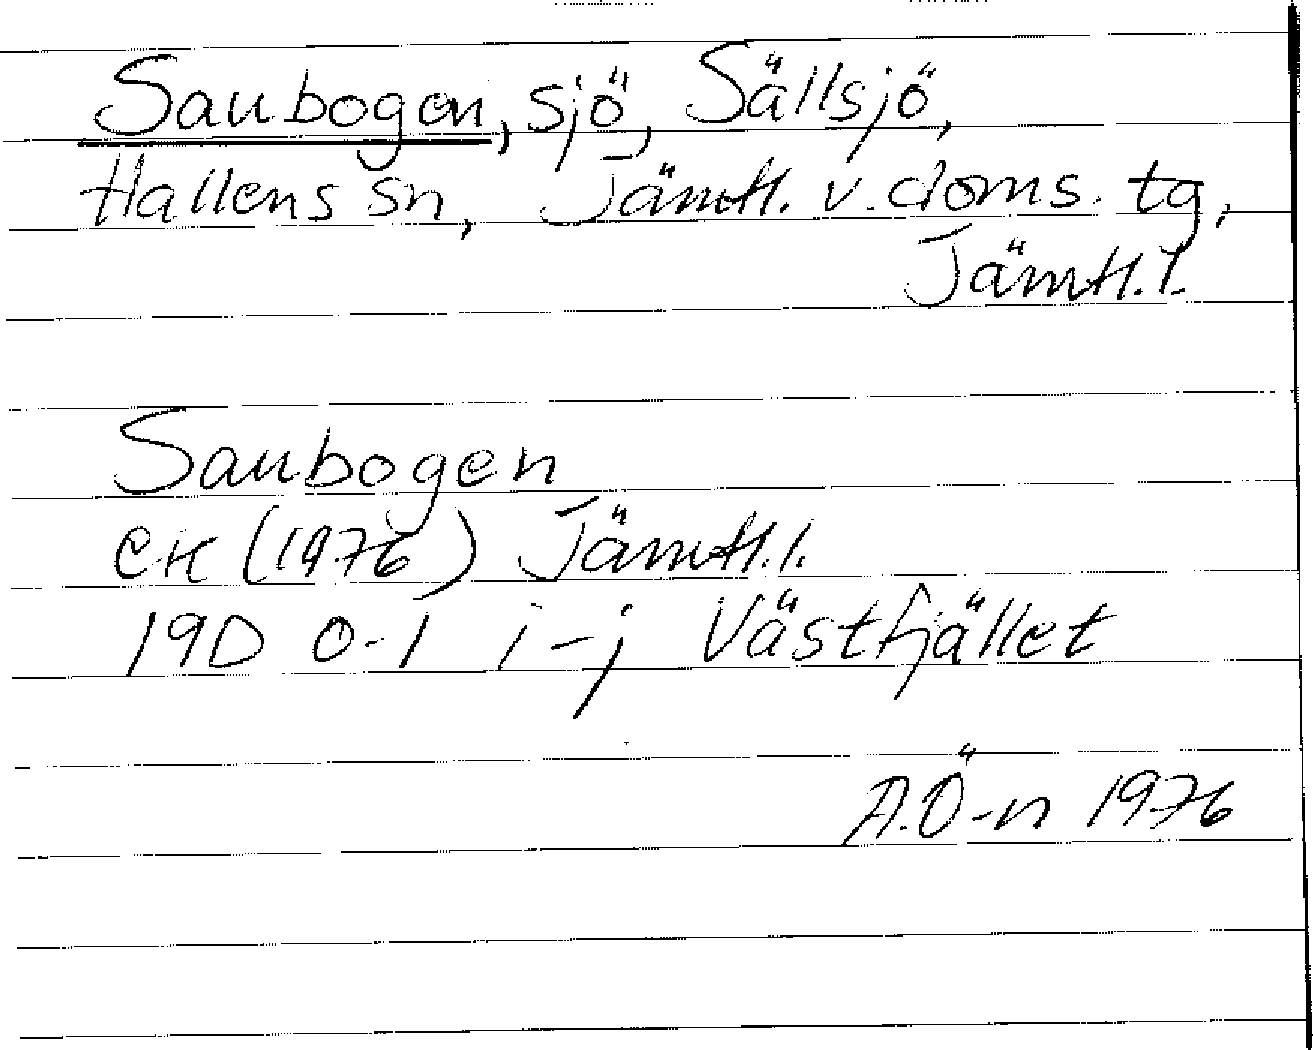 Saubogen, sjö, Sällsjö,
Hallens sn, Jämtl. v. doms. tg,
Jämtl. l.
Saubogen
ek (1976) Jämtl. l.
19D 0-1 i-j Västfjället
A.Ö-n 1976